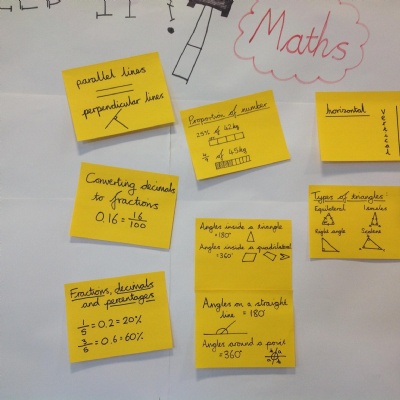 Maths
parallel lines
perpendicular lines
Proportion of number
25% of 42kg
of 45kg
horizontal
vertical
Converting decimals
to fractions
0.16 = 16/100
Types of triangles
Equilateral
Right angle
Scalene
Angles inside a triangle
= 180°
Angles inside a quadrilateral
= 360°
Fractions, decimals
and percentages
1/5 = 0.2 = 20%
3/5 = 0.6 = 60%
Angles on a straight
line = 180°
Angles around a point
= 360°